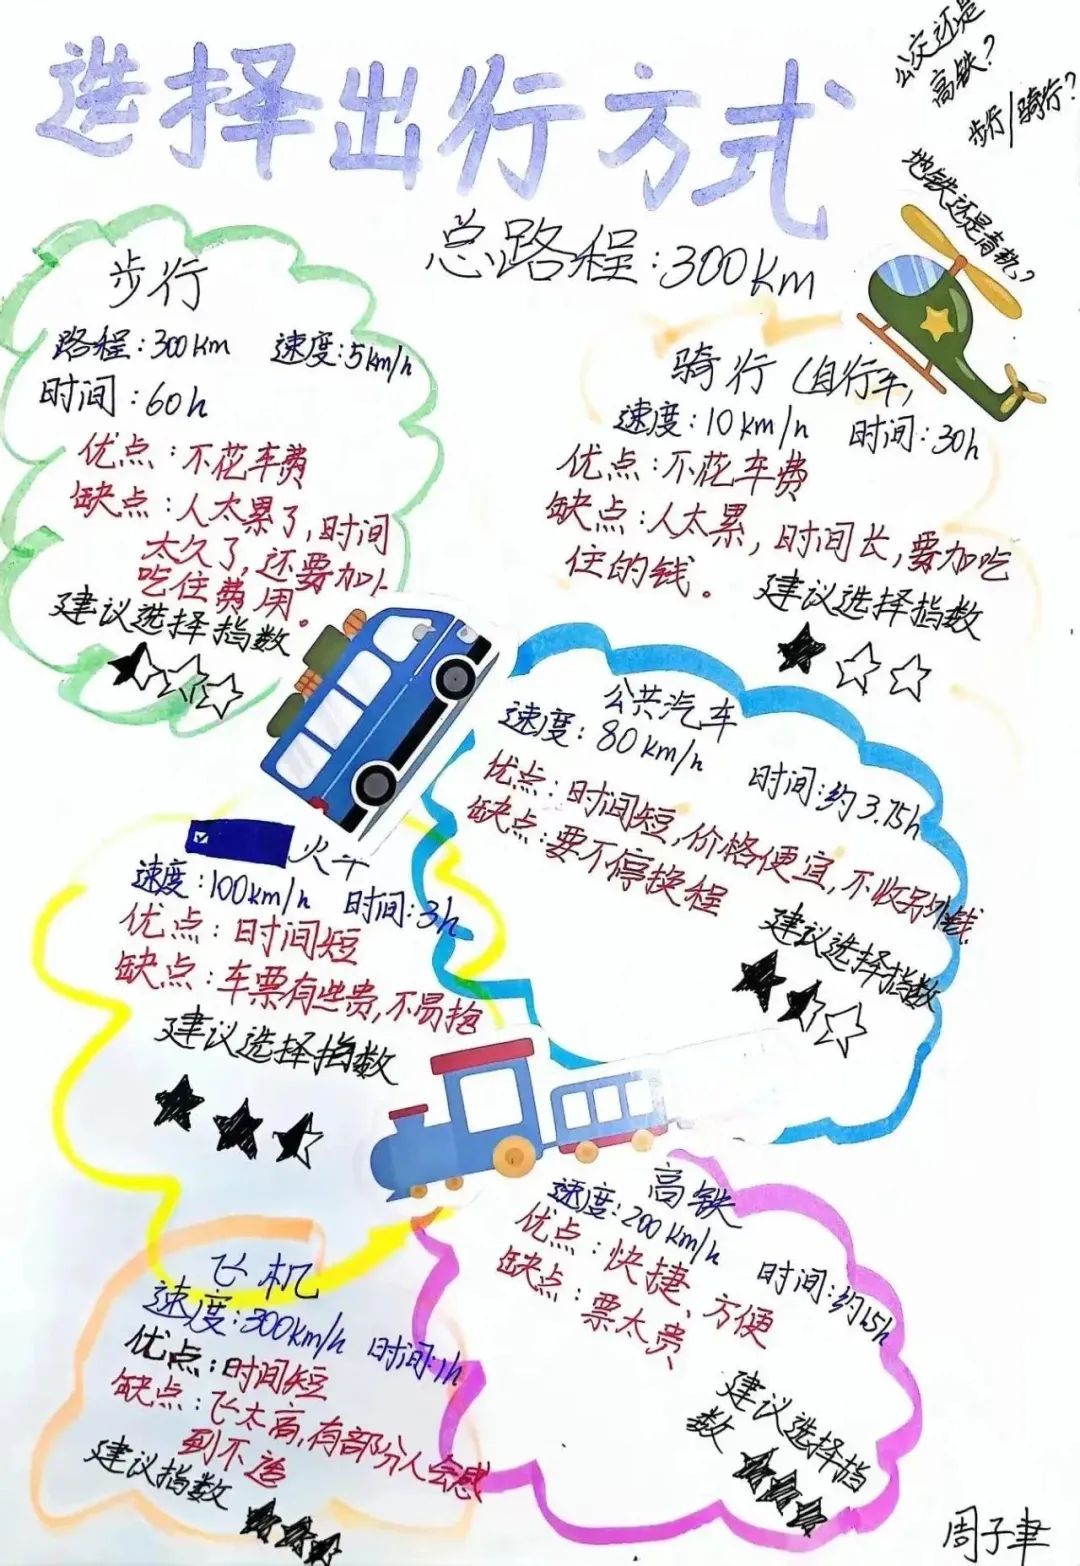 选择出行方式
公交还是
高铁?
步行/骑行?
地铁还是高轨?
总路程:300Km
步行
路程:300Km 速度:5km/h
时间:60h
优点:不花车费
缺点:人太累了,时间
太久了,还要加上
吃住费用。
建议选择指数
骑行(自行车)
速度:10km/h 时间:30h
优点:不花车费
缺点:人太累,时间长,要加吃
住的钱。
建议选择指数
公共汽车
速度:80km/h 时间:约3.75h
优点:时间短,价格便宜,不收另外钱
缺点:要不停换程
建议选择指数
火车
速度:100km/h 时间:3h
优点:时间短
缺点:车票有些贵,不易抢
建议选择指数
高铁
速度:200Km/h 时间:约1.5h
优点:快捷、方便
缺点:票太贵
建议选择指
数
飞机
速度:300km/h 时间:1h
优点:时间短
缺点:飞太高,有部分人会感
到不适
建议指数
周子聿